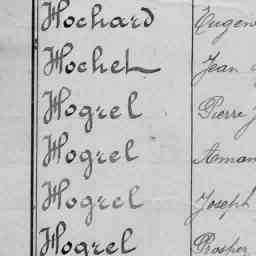 Hochard Eugen
Hochet Jean
Hogrel Pierre J
Hogrel Aman
Hogrel Joseph
Hogrel Prosper